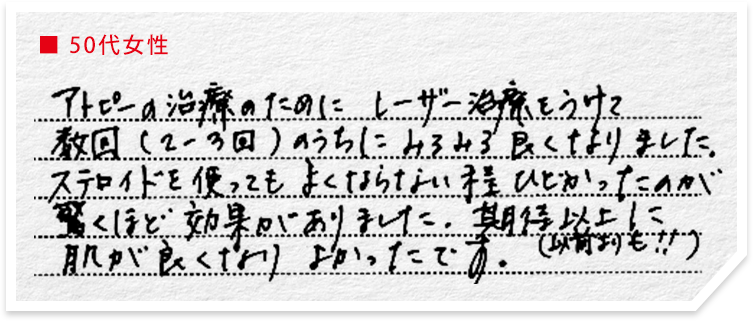 ■ 50代女性
アトピーの治療のために レーザー治療をうけて
数回(2-3回)のうちに みるみる 良くなりました。
ステロイドを使っても よくならない程 ひどかったのが
驚くほど 効果がありました。期待以上に
肌が良くなり よかったです。(以前よりも!!)